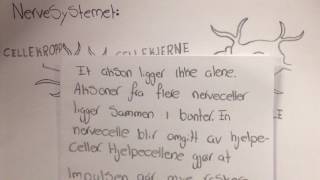 Nervesystemet:
CELLEKROPP
CELLEKJERNE
Et ahson ligger ihhe alene.
Ahsoner fra flere nerveceller
ligger sammen i bunter. En
nervecelle blir omgitt av hjelpe-
celler. Hjelpecellene gjør at
impulsen går mye